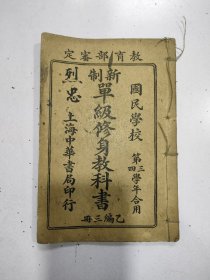 教育部審定
國民學校
第三四學年合用
新制
單級修身教科書
乙編三冊
忠烈
上海中華書局印行